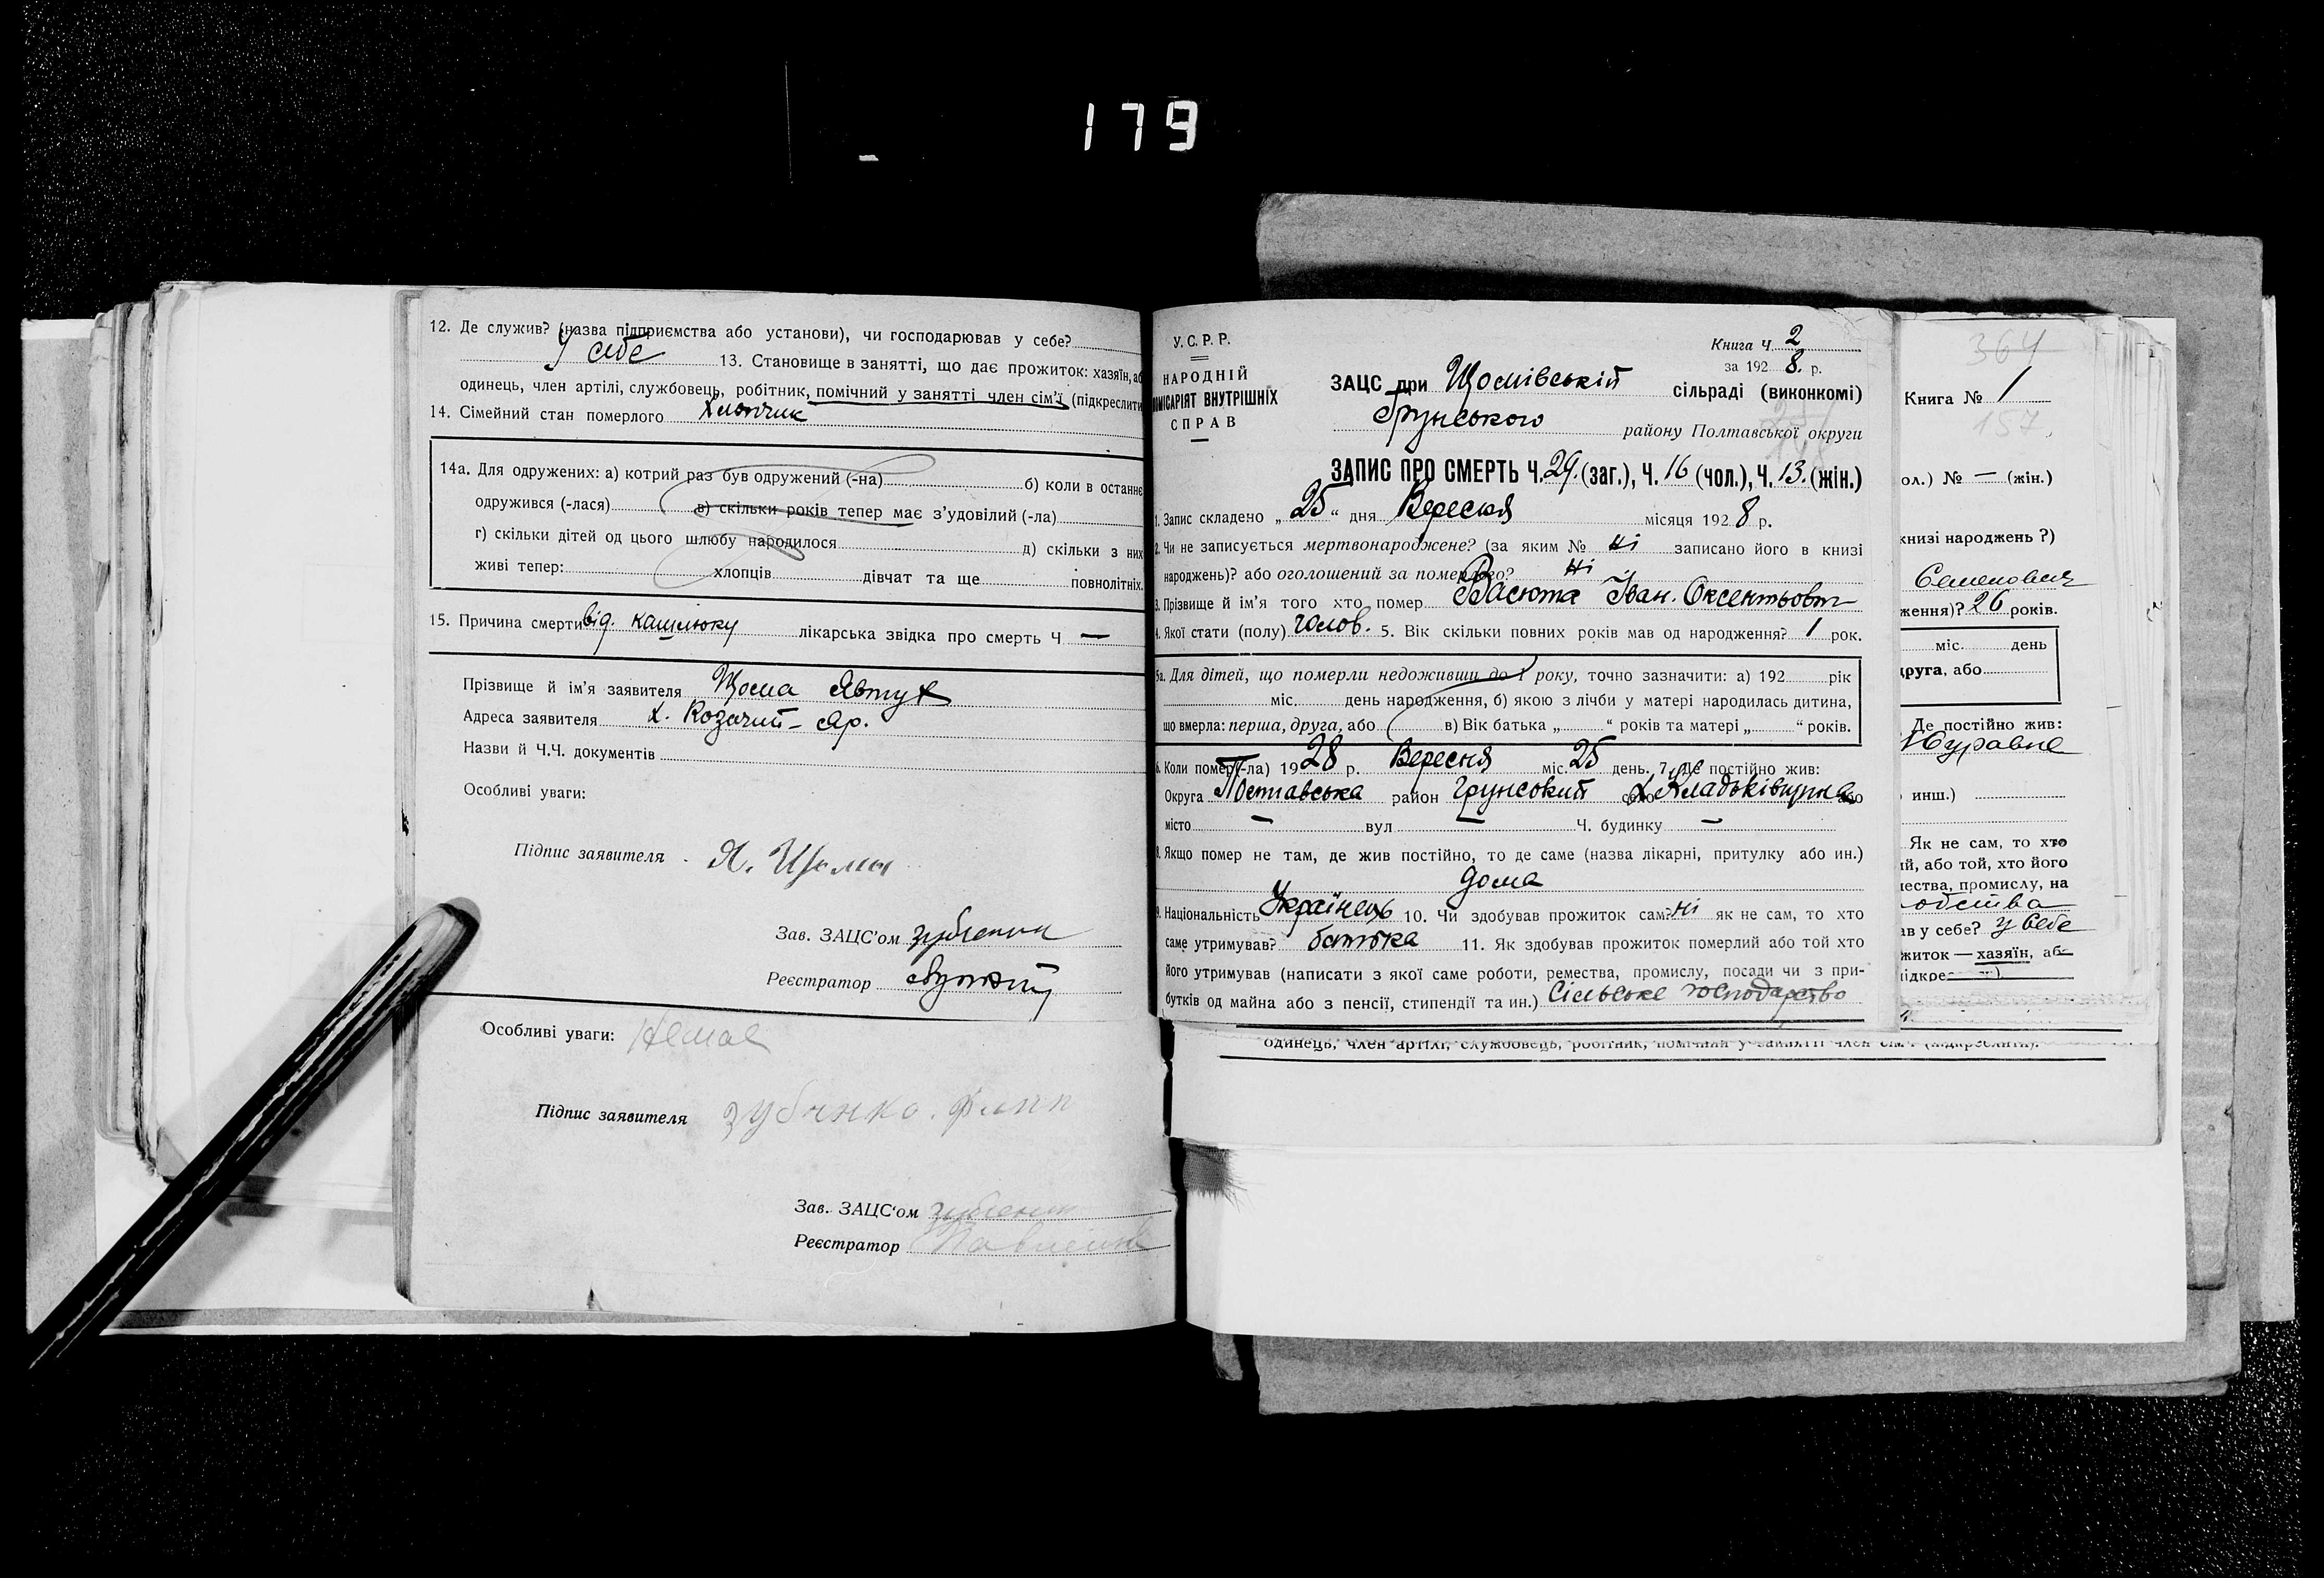 179
12. Де служив? (назва підприємства або установи), чи господарював у себе?
у себе 13. Становище в занятті, що дає прожиток: хазяїн, аб
одинець, член артілі, службовець, робітник, помічний у занятті член сім'ї (підкреслити
14. Сімейний стан померлого хлопчик
14а. Для одружених: а) котрий раз був одружений (-на) б) коли в останнє
одружився (-лася) в) скільки років тепер має з'удовілий (-ла)
г) скільки дітей од цього шлюбу народилося д) скільки з них
живі тепер: хлопців дівчат та ще повнолітніх.
15. Причина смерти від. кашлюку лікарська звідка про смерть Ч —
Прізвище й ім'я заявителя Щома Явтух
Адреса заявителя х. Козачий-Яр.
Назви й Ч.Ч. документів
Особливі уваги:
Підпис заявителя Я. Щома
Зав. ЗАЦС'ом
Реєстратор
Особливі уваги: Немає
Підпис заявителя Зубенко.
Зав. ЗАЦС'ом
Реєстратор
У.С.Р.Р.
НАРОДНІЙ
МІСАРІЯТ ВНУТРІШНІХ
СПРАВ
Книга ч. 2
за 1928. р.
ЗАЦС при Щомівській сільраді (виконкомі)
Грунського району Полтавської округи
ЗАПИС ПРО СМЕРТЬ Ч. 29. (заг.), Ч. 16 (чол.), Ч. 13. (жін.)
1. Запис складено „25“ дня Вересня місяця 1928 р.
2. Чи не записується мертвонароджене? (за яким № ні записано його в книзі
народжень)? або оголошений за померлого? ні
3. Прізвище й ім'я того хто помер Васюта Іван. Оксентьович
4. Якої стати (полу) чолов. 5. Вік скільки повних років мав од народження? 1 рок.
5а. Для дітей, що померли недоживши до 1 року, точно зазначити: а) 192 рік
міс. день народження, б) якою з лічби у матері народилась дитина,
що вмерла: перша, друга, або в) Вік батька „ “ років та матері „ “ років.
6. Коли помер (-ла) 1928 р. Вересня міс. 25 день. 7. Де постійно жив:
Округа Полтавська район Грунський село х. Кладьківщина або
місто — вул — Ч. будинку —
8. Якщо помер не там, де жив постійно, то де саме (назва лікарні, притулку або ин.)
дома
9. Національність Українець 10. Чи здобував прожиток сам? ні як не сам, то хто
саме утримував? батька 11. Як здобував прожиток померлий або той хто
його утримував (написати з якої саме роботи, ремества, промислу, посади чи з при-
бутків од майна або з пенсії, стипендії та ин.) Сільське господарство
одинець, член артілі, службовець, робітник, помічний у занятті член сім'ї (підкреслити).
364
Книга № 1
157.
ол.) № — (жін.)
книзі народжень ?)
Семенович
ження)? 26 років.
міс. день
друга, або
Де постійно жив:
Журавне
инш.)
Як не сам, то хто
ий, або той, хто його
ества, промислу, на
ав у себе? у себе
житок — хазяїн, або
підкре